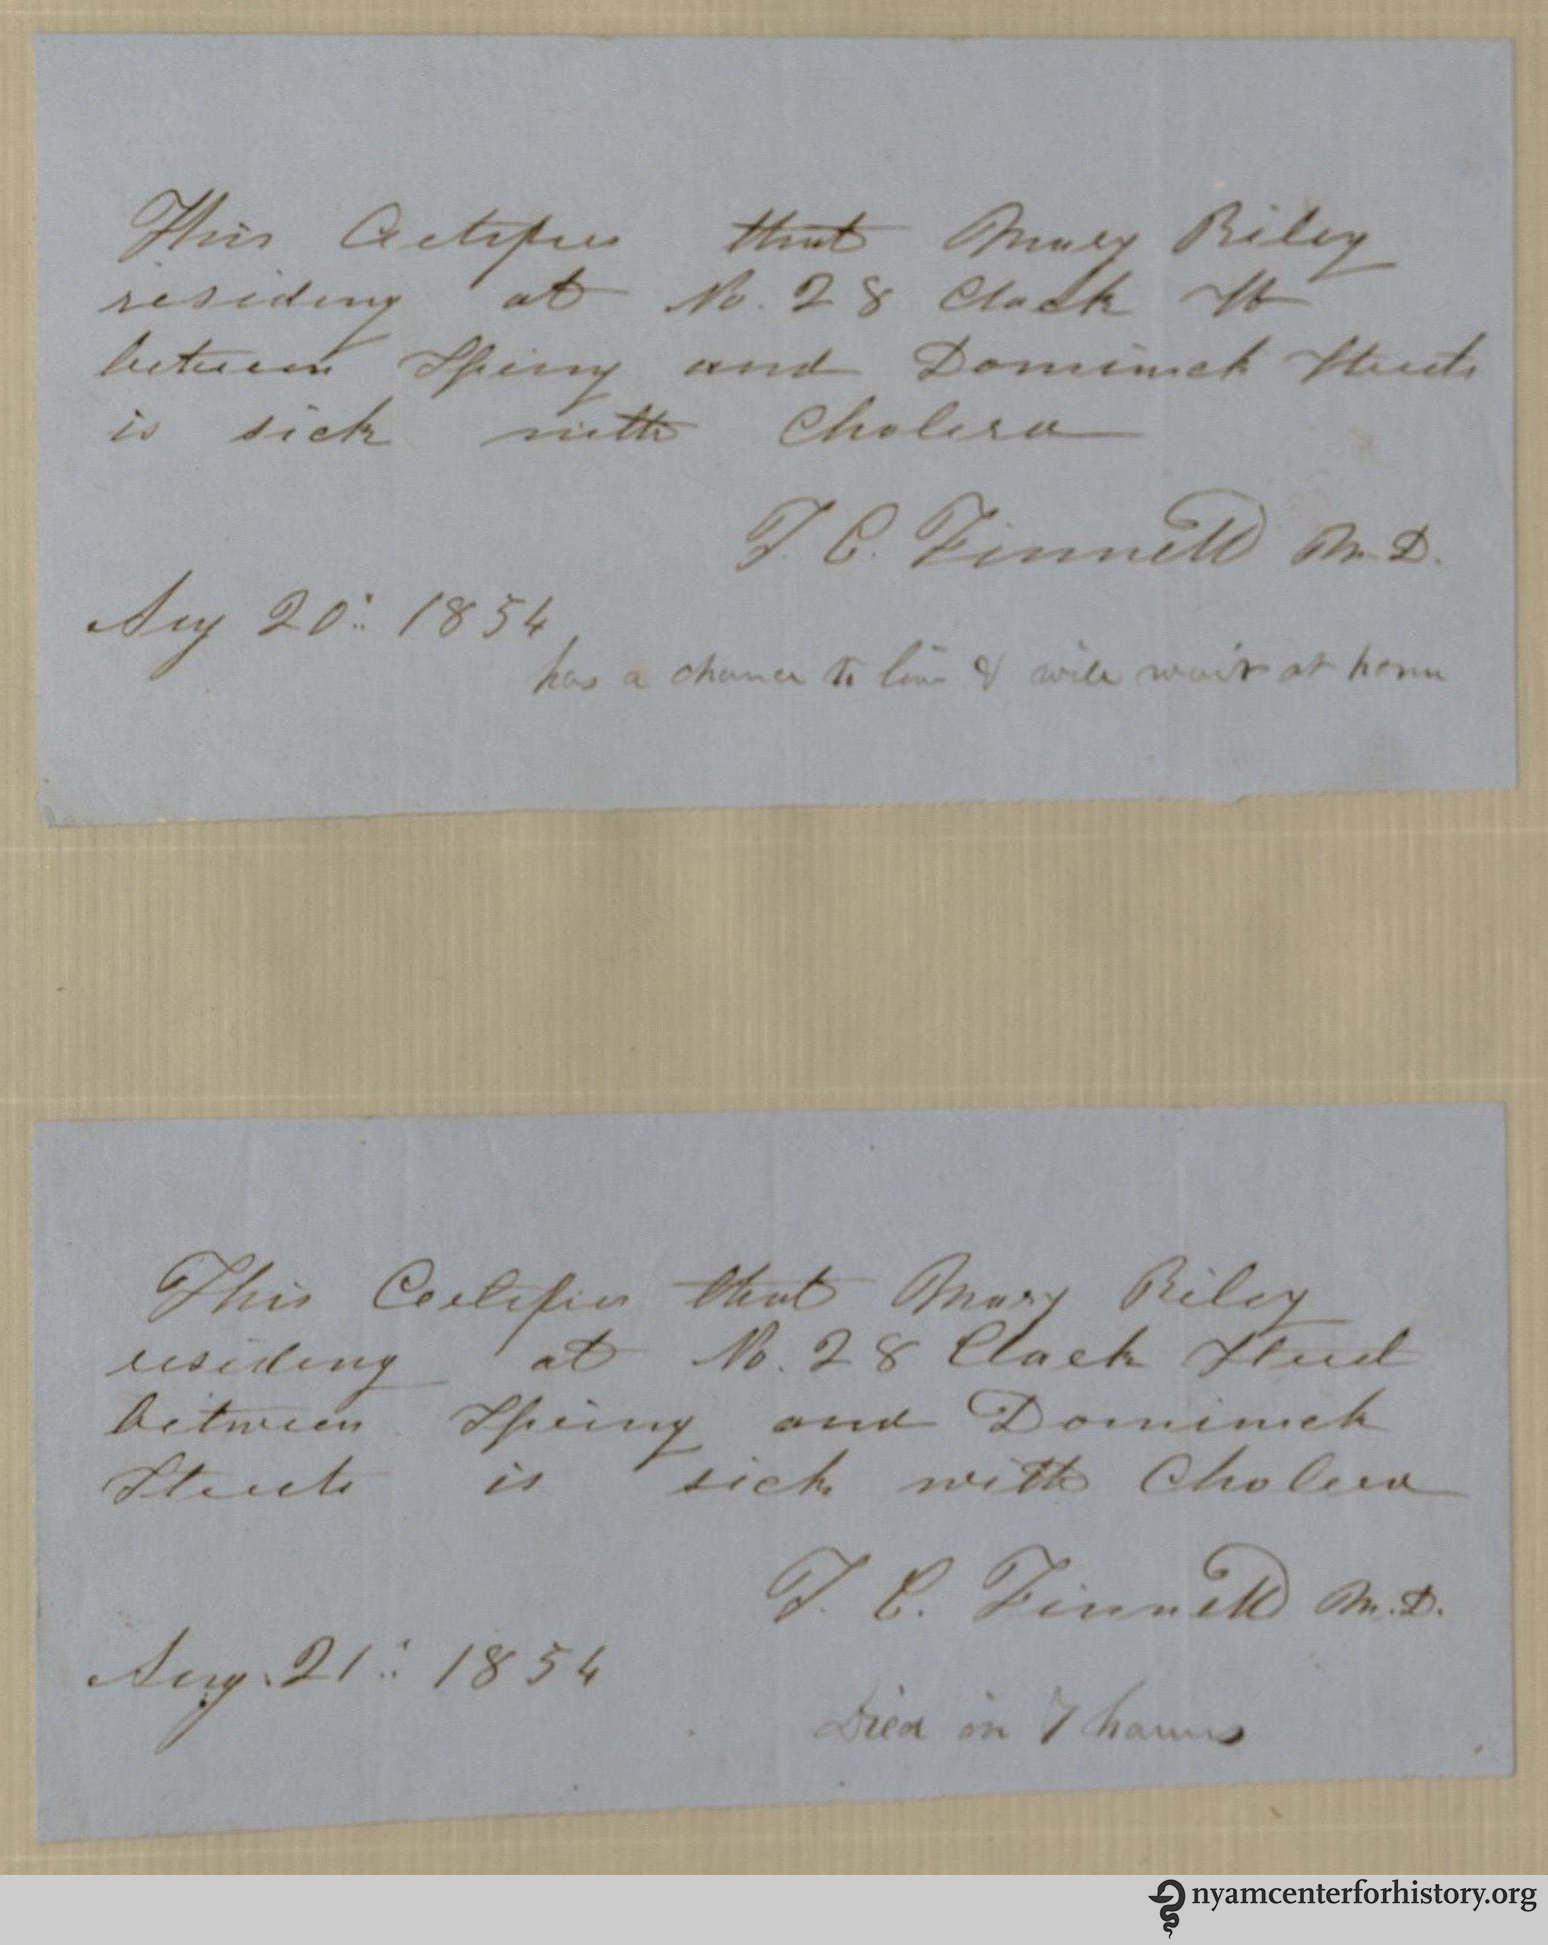 This Certifies that Mary Riley
residing at No. 28 Clark St
between Spring and Dominick Streets
is sick with Cholera
T. C. Finnell M.D.
Aug 20th 1854
has a chance to live & will wait at home
This Certifies that Mary Riley
residing at No. 28 Clark Street
between Spring and Dominick
Streets is sick with Cholera
T. C. Finnell M.D.
Aug. 21st 1854
Died in 7 hours
nyamcenterforhistory.org